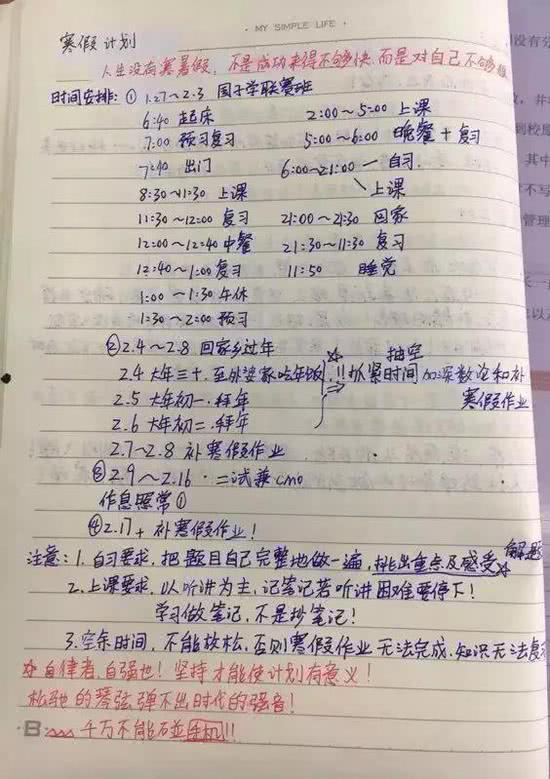 MY SIMPLE LIFE
寒假计划
人生没有寒暑假，不是成功来得不够快，而是对自己不够狠
时间安排：① 1.27~2.3 国子学联赛班
6:40 起床 2:00~5:00 上课
7:00 预习复习 5:00~6:00 晚餐+复习
7:40 出门 6:00~21:00 一 自习
8:30~11:30 上课 上课
11:30~12:00 复习 21:00~21:30 回家
12:00~12:40 中餐 21:30~11:30 复习
12:40~1:00 复习 11:50 睡觉
1:00~1:30 午休
1:30~2:00 预习
② 2.4~2.8 回家乡过年 抽空
2.4 大年三十.至外婆家吃年饭 !!抓紧时间加深数论和补
2.5 大年初一.拜年 寒假作业
2.6 大年初二.拜年
2.7~2.8 补寒假作业
③ 2.9~2.16.二试兼CMO
作息照常①
④ 2.17+ 补寒假作业！
注意：1.自习要求.把题目自己完整地做一遍，挑出重点及感受 解题
2.上课要求.以听讲为主，记笔记若听讲困难要停下！
学习做笔记，不是抄笔记！
3.空余时间，不能放松，否则寒假作业无法完成，知识无法复习
☆自律者，自强也！坚持才能使计划有意义！
松驰的琴弦弹不出时代的强音！
B 千万不能碰手机!!
没有分
并
到校
其中
不写
管理